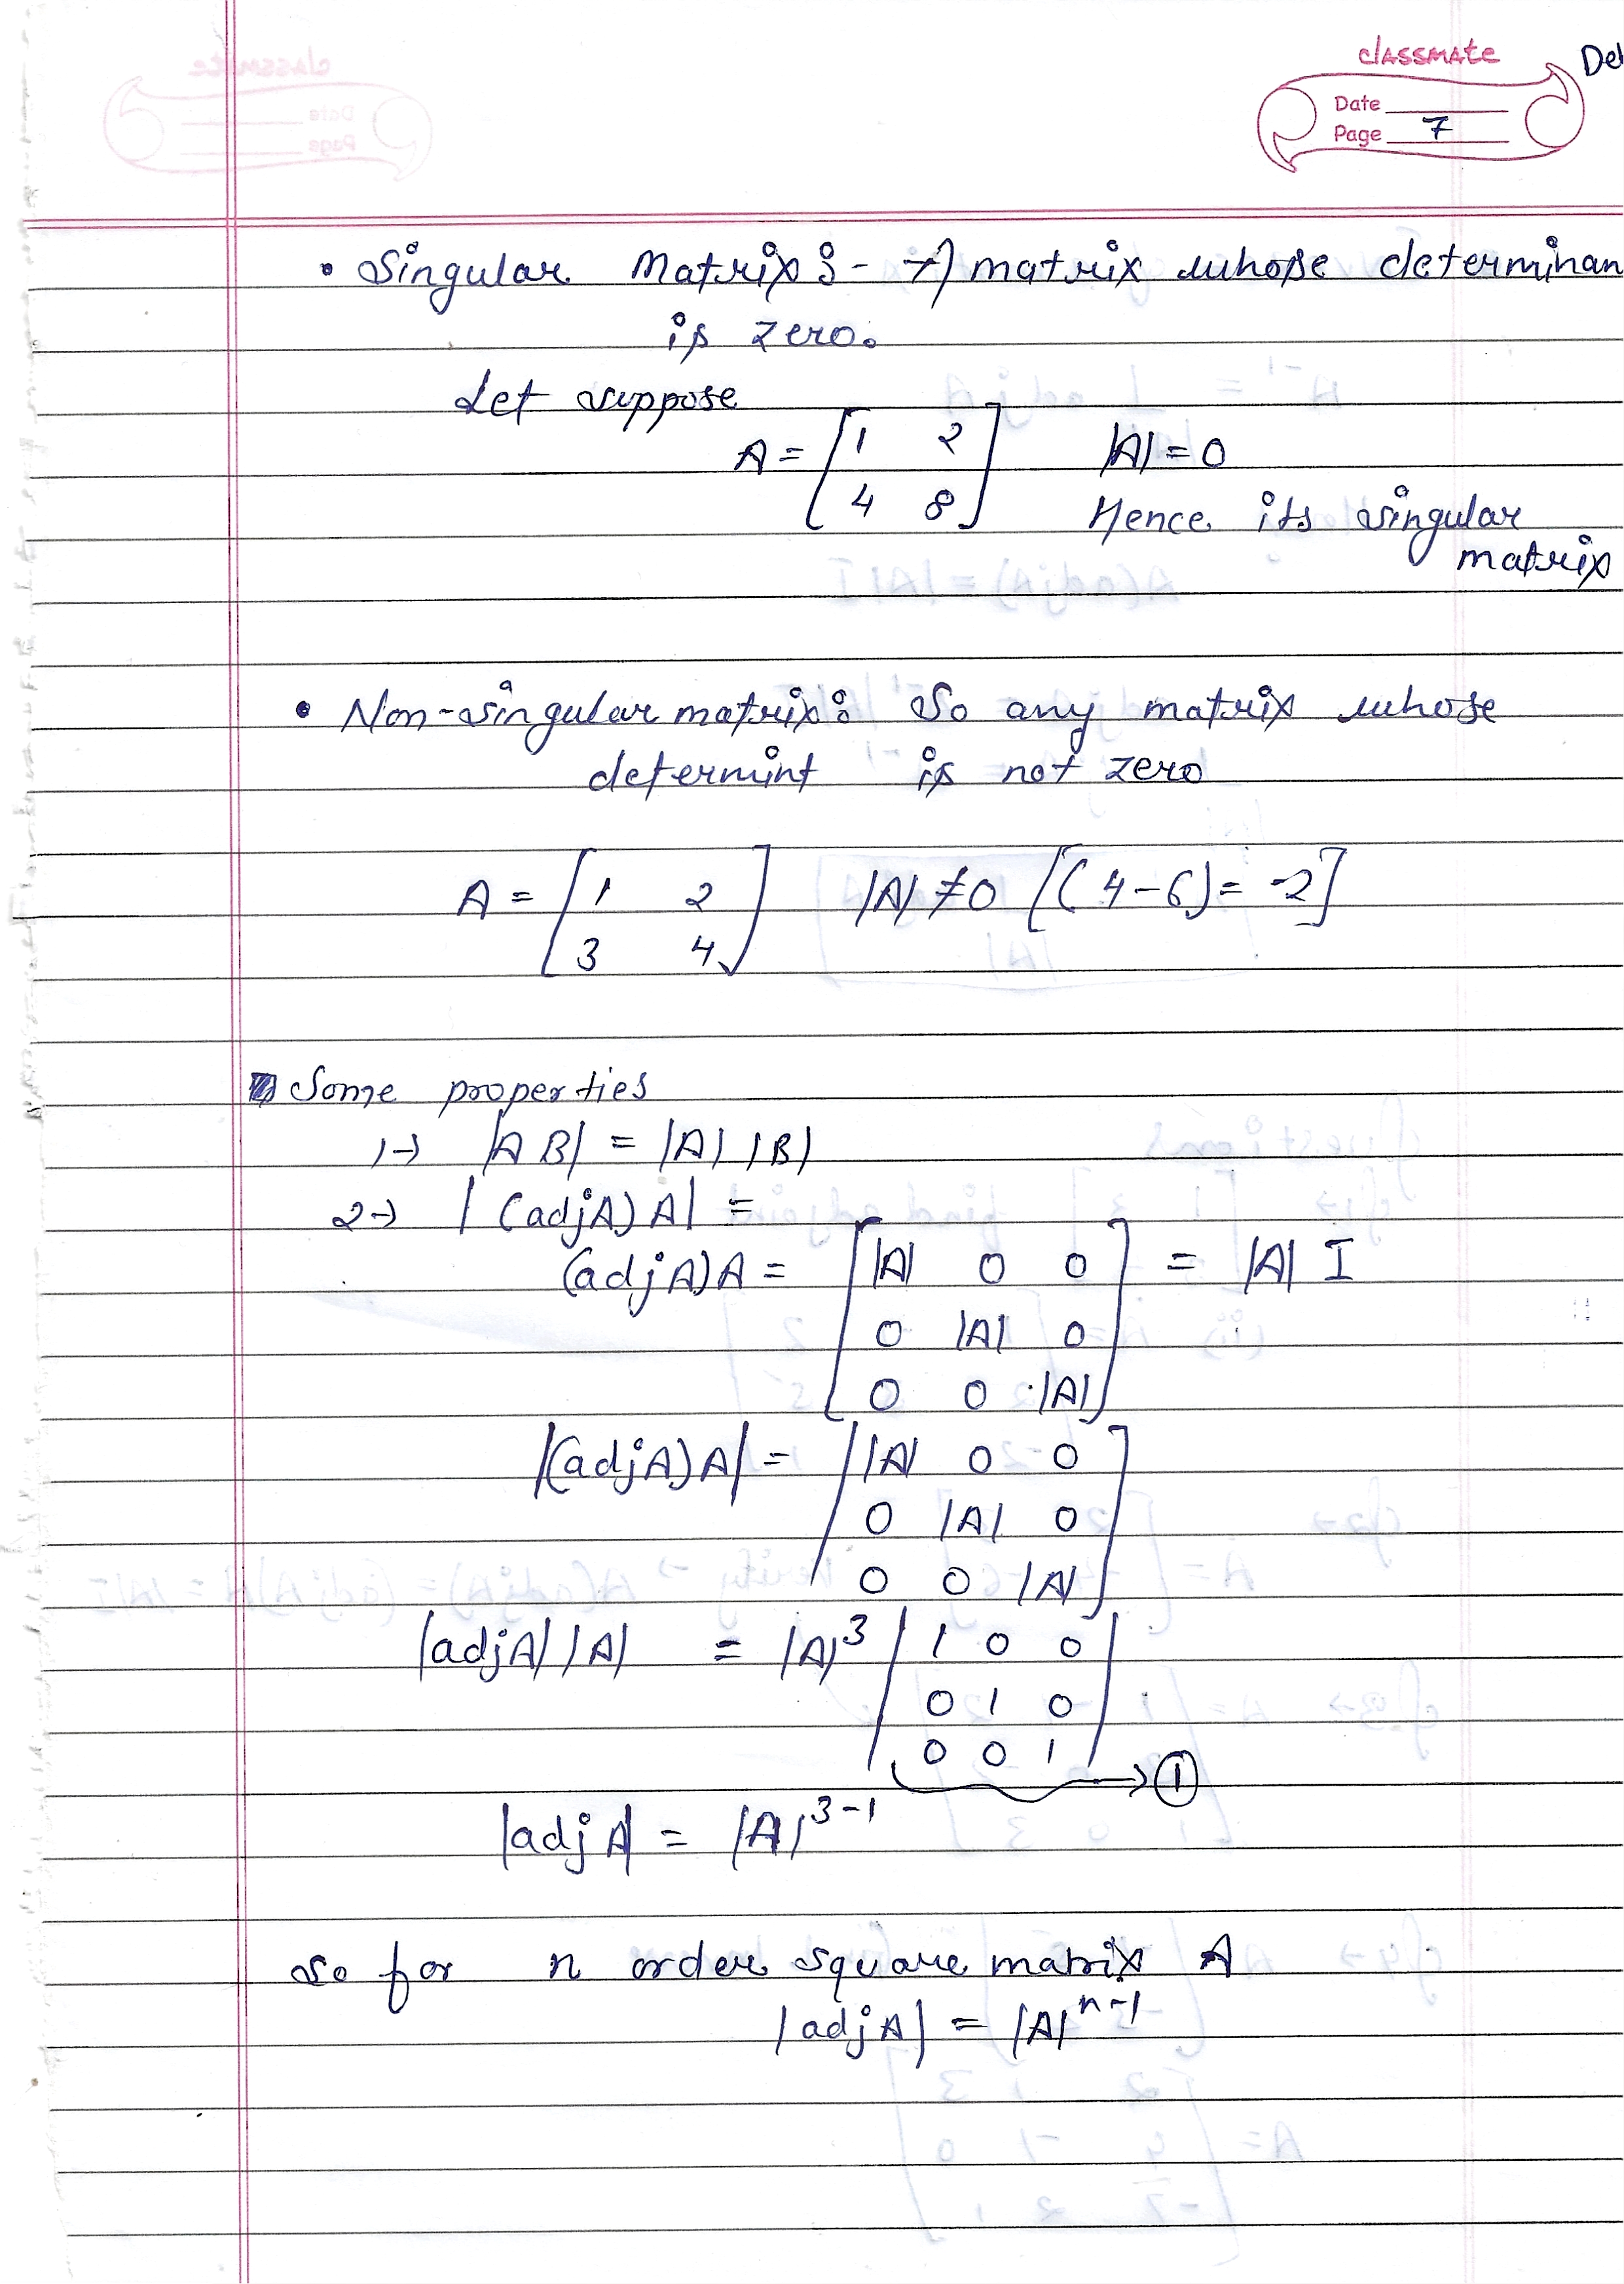 classmate
De
Date
Page 7
• Singular Matrix :- A matrix whose determinan
is zero.
Let suppose
A = [1 2
4 8] |A| = 0
Hence its singular
matrix
• Non-singular matrix : So any matrix whose
determint is not zero
A = [1 2
3 4] |A| ≠ 0 [(4-6) = -2]
Some properties
1→ |AB| = |A| |B|
2→ |(adjA) A| =
(adjA)A = [|A| 0 0
0 |A| 0
0 0 |A|] = |A| I
|(adjA)A| = |A| 0 0
0 |A| 0
0 0 |A|
|adjA| |A| = |A|³ |1 0 0
0 1 0
0 0 1| → ①
|adj A| = |A|³⁻¹
So for n order square matrix A
|adjA| = |A|ⁿ⁻¹